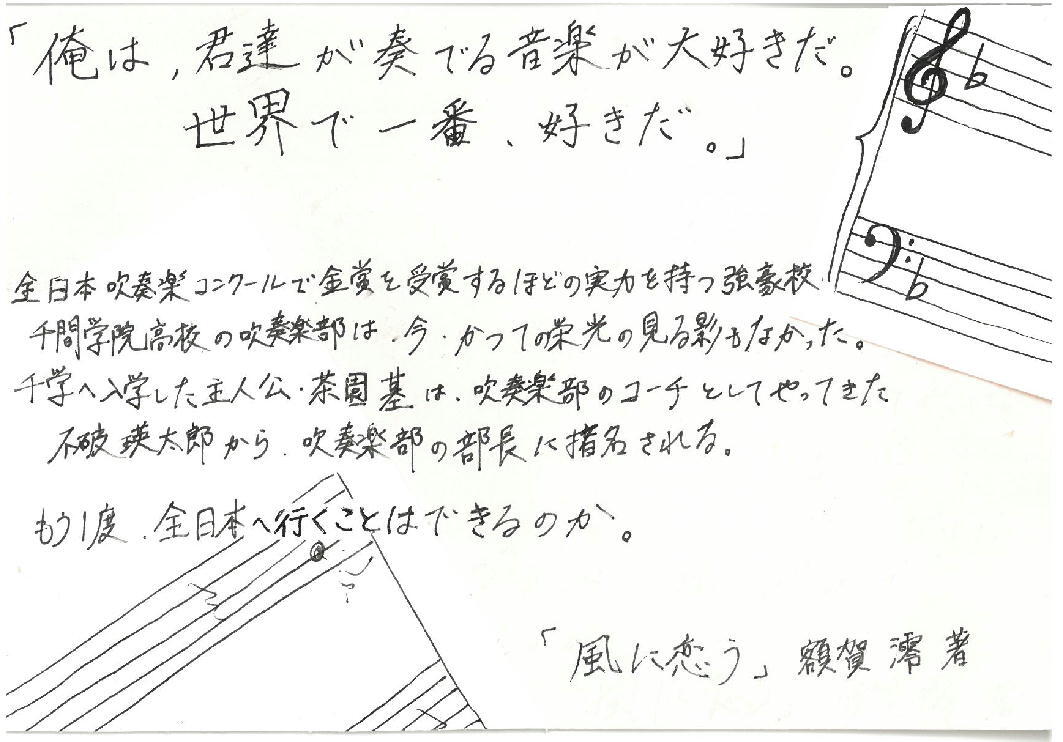 「俺は,君達が奏でる音楽が大好きだ。
世界で一番、好きだ。」
全日本吹奏楽コンクールで金賞を受賞するほどの実力を持つ強豪校
千間学院高校の吹奏楽部は、今、かつての栄光の見る影もなかった。
千学へ入学した主人公・茶園基は、吹奏楽部のコーチとしてやってきた
不破瑛太郎から、吹奏楽部の部長に指名される。
もう1度、全日本へ行くことはできるのか。
「風に恋う」額賀澪著